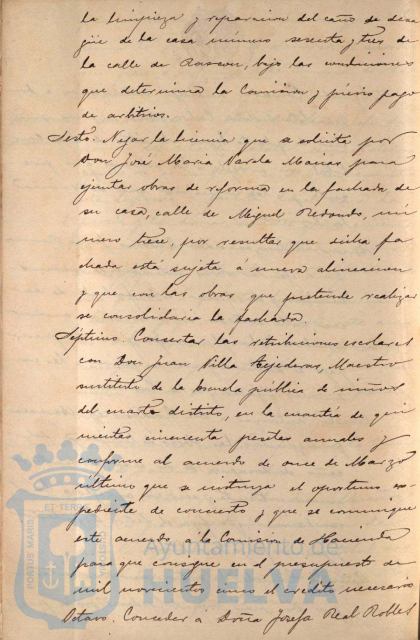 la limpieza y reparacion del caño de desa
güe de la casa número sesenta y tres de
la calle de Rascon, bajo las condiciones
que determina la Comision y previo pago
de arbitrios.
Sesto. Negar la licencia que se solicita por
Don José Maria Varela Macias para
ejecutar obras de reforma en la fachada de
su casa, calle de Miguel Redondo, nú
mero trece, por resultar que dicha fa
chada está sujeta á nueva alineacion
y que con las obras que pretende realizar
se consolidaria la fachada.
Séptimo. Concertar las retribuciones escolares
con Don Juan Villa Tejederas, Maestro
sustituto de la Escuela pública de niños
del cuarto distrito, en la cuantia de qui
nientas cincuenta pesetas anuales y
conforme al acuerdo de once de Marzo
último que se instruya el oportuno ex
pediente de concierto y que se comunique
este acuerdo á la Comision de Hacienda
para que consigne en el presupuesto de
mil novecientos cinco el crédito necesario
Octavo. Conceder á Doña Josefa Real Robles
PORTUS MARIS
ET TERRAE
CUSTODIA
Ayuntamiento de
HUELVA